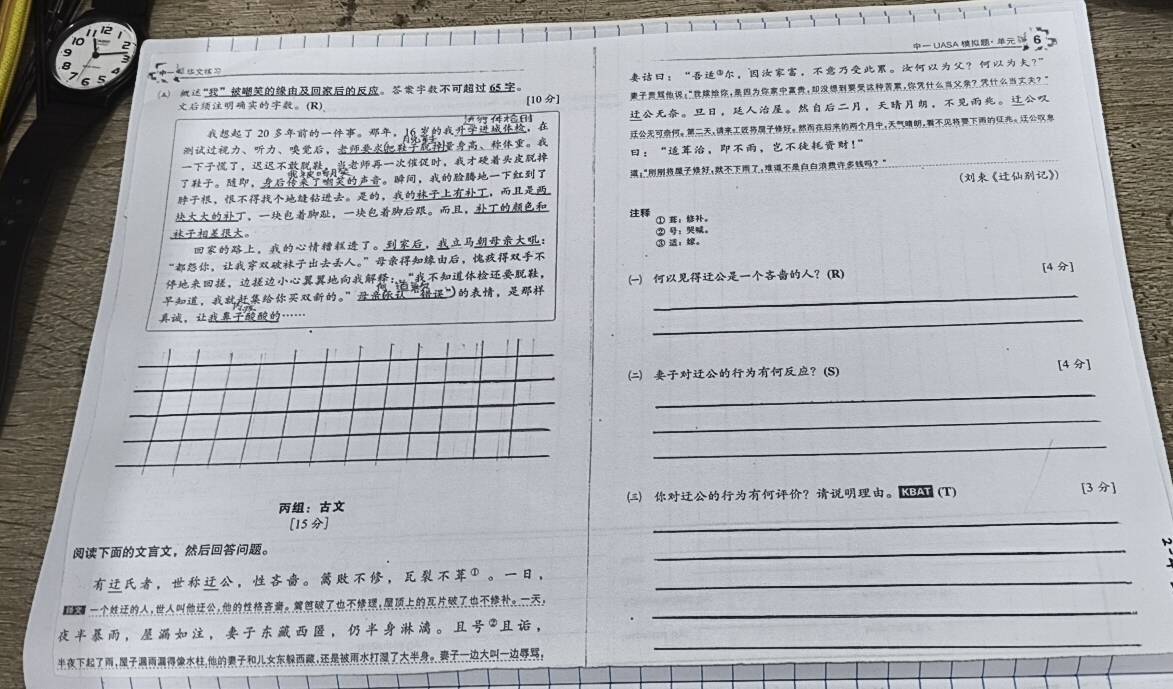 中一 华文练习
(A) 概述“我”被嘲笑的缘由及回家后的反应。答案字数不可超过 65 字。
文后须注明确实的字数。(R) [10 分]
我想起了 20 多年前的一件事。那年，16 岁的我升学进城体检，在
测试过视力、听力、嗅觉后，老师要求把鞋子脱掉量身高、称体重。我
一下子慌了，迟迟不敢脱鞋，当老师再一次催促时，我才硬着头皮脱掉
了鞋子。随即，身后传来了嘲笑的声音。瞬间，我的脸腾地一下红到了
脖子根，恨不得找个地缝钻进去。是的，我的袜子上有补丁，而且是两
块大大的补丁，一块包着脚趾，一块包着脚后跟。而且，补丁的颜色和
袜子相差很大。
回家的路上，我的心情糟糕透了。到家后，我立马朝母亲大吼：
“都怨你，让我穿双破袜子出去丢人。”母亲得知缘由后，愧疚得双手不
停地来回搓，边搓边小心翼翼地向我解释：“我不知道体检还要脱鞋，
早知道，我就赶集给你买双新的。”母亲承认“错误”的表情，是那样
真诚，让我鼻子酸酸的……
丙组：古文
[15 分]
阅读下面的文言文，然后回答问题。
有迂氏者，世称迂公，性吝啬。篱败不修，瓦裂不葺①。一日，
译文 一个姓迂的人，世人叫他迂公，他的性格吝啬。篱笆破了也不修理，屋顶上的瓦片破了也不修补。一天，
夜半暴雨，屋漏如注，妻子东藏西匿，仍半身淋漓。且号②且诟，
半夜下起了雨，屋子漏雨漏得像水柱，他的妻子和儿女东躲西藏，还是被雨水打湿了大半身。妻子一边大叫一边辱骂，
中一 UASA 模拟题·单元 6
妻诘曰：“吾适③尔，因汝家富，不意乃受此累。汝何以为父？何以为夫？”
妻子责骂他说：“我嫁给你，是因为你家中富贵，却没想到要受这种苦累，你凭什么当父亲？凭什么当丈夫？”
迂公无奈。旦日，延人治屋。然自后二月，天晴月朗，不见雨兆。迂公叹
迂公无可奈何。第二天，请来工匠将屋子修好。然而在后来的两个月中，天气晴朗，看不见将要下雨的征兆。迂公叹息
曰：“适葺治，即不雨，岂不徒耗资财！”
道：“刚刚将屋子修好，就不下雨了，难道不是白白浪费许多钱吗？”
（刘束《迂仙别记》）
注释
① 葺：修补。
② 号：哭喊。
③ 适：嫁。
(一) 何以见得迂公是一个吝啬的人？(R) [4 分]
(二) 妻子对迂公的行为有何反应？(S) [4 分]
(三) 你对迂公的行为有何评价？请说明理由。KBAT (T) [3 分]